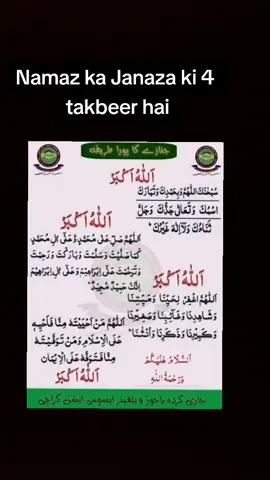 Namaz ka Janaza ki 4
takbeer hai
جنازے کا پورا طریقہ
اَللّٰهُ اَكْبَرْ
سُبْحٰنَكَ اللّٰهُمَّ وَبِحَمْدِكَ وَتَبَارَكَ
اسْمُكَ وَتَعَالٰى جَدُّكَ وَجَلَّ
ثَنَاءُكَ وَلَآ اِلٰهَ غَيْرُكَ
اَللّٰهُ اَكْبَرْ
اَللّٰهُمَّ صَلِّ عَلٰى مُحَمَّدٍ وَّعَلٰى اٰلِ مُحَمَّدٍ
كَمَا صَلَّيْتَ وَسَلَّمْتَ وَبَارَكْتَ وَرَحِمْتَ
وَتَرَحَّمْتَ عَلٰى اِبْرَاهِيْمَ وَعَلٰى اٰلِ اِبْرَاهِيْمَ
اِنَّكَ حَمِيْدٌ مَّجِيْدٌ
اَللّٰهُ اَكْبَرْ
اَللّٰهُمَّ اغْفِرْ لِحَيِّنَا وَمَيِّتِنَا
وَشَاهِدِنَا وَغَآئِبِنَا وَصَغِيْرِنَا
وَكَبِيْرِنَا وَذَكَرِنَا وَاُنْثٰنَا
اَللّٰهُمَّ مَنْ اَحْيَيْتَهٗ مِنَّا فَاَحْيِهٖ
عَلَى الْاِسْلَامِ وَمَنْ تَوَفَّيْتَهٗ
مِنَّا فَتَوَفَّهٗ عَلَى الْاِيْمَان
اَللّٰهُ اَكْبَرْ
اَلسَّلَامُ عَلَيْكُمْ
وَرَحْمَةُ اللّٰهِ
جاری کردہ باجوڑ ویلفیئر ایسوسی ایشن کراچی